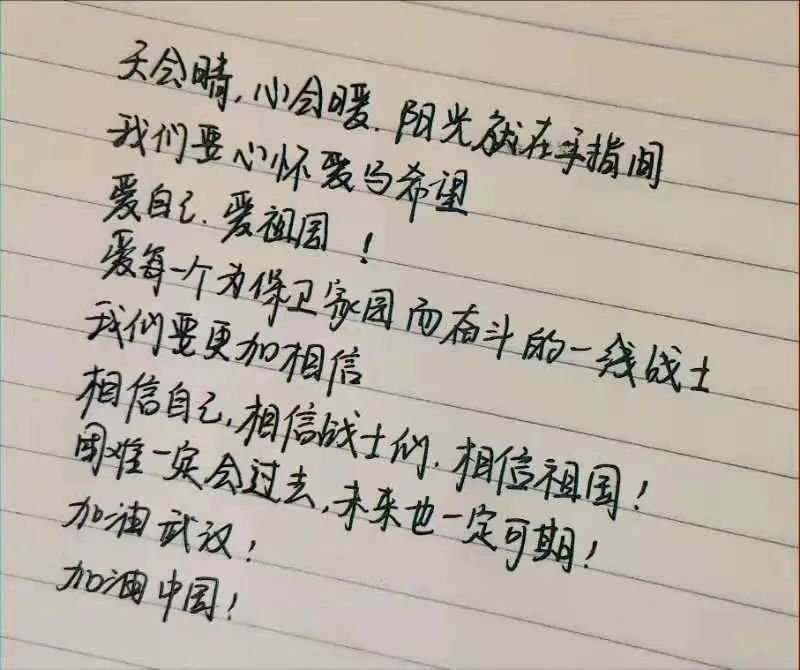 天会晴,心会暖.阳光就在手指间
我们要心怀爱与希望
爱自己.爱祖国!
爱每一个为保卫家园而奋斗的一线战士
我们要更加相信
相信自己,相信战士们.相信祖国!
困难一定会过去,未来也一定可期!
加油武汉!
加油中国!